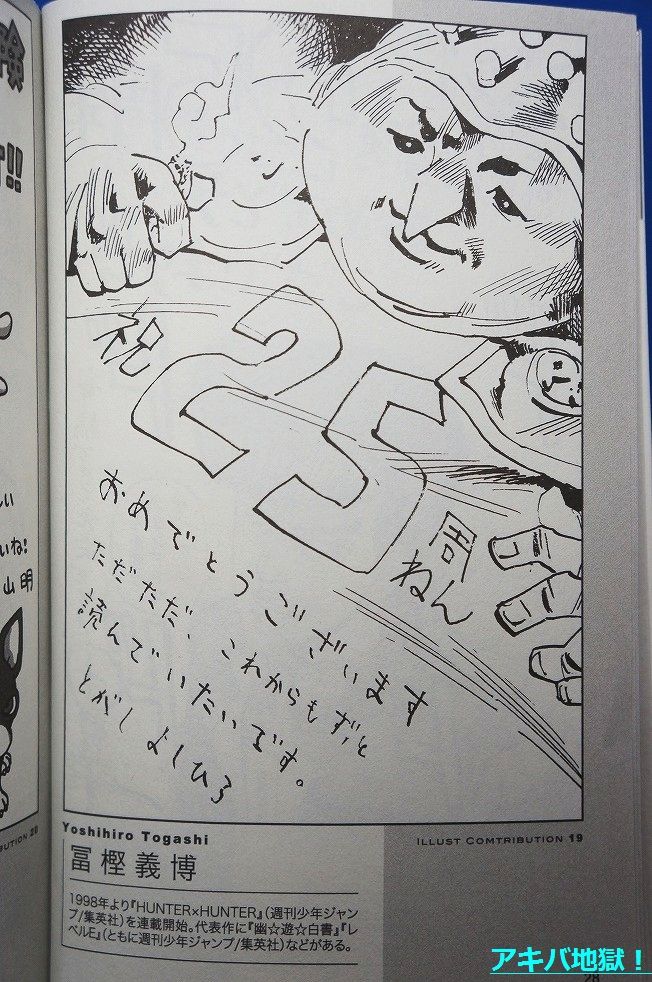 険
!!
祝
25
周
ねん
おめでとうございます
ただただ、これからもずっと
読んでいたいです。
とがしよしひろ
しい
いね!
山明
BUTION 20
Yoshihiro Togashi
ILLUST COMTRIBUTION 19
冨樫義博
1998年より『HUNTER×HUNTER』(週刊少年ジャン
プ/集英社)を連載開始。代表作に『幽☆遊☆白書』『レ
ベルE』(ともに週刊少年ジャンプ/集英社)などがある。
アキバ地獄!
28